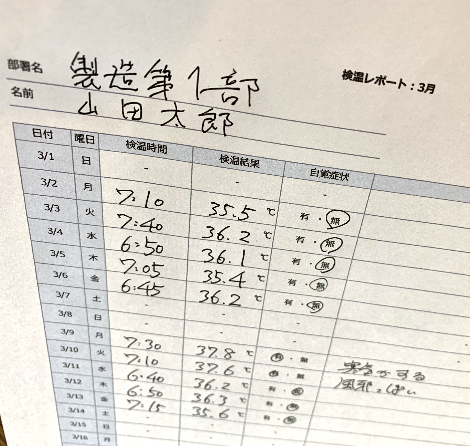 部署名 製造第1部
検温レポート：3月
名前 山田太郎
日付 曜日 検温時間 検温結果 自覚症状
3/1 日 - - -
3/2 月 7:10 35.5 ℃ 有・無
3/3 火 7:40 36.2 ℃ 有・無
3/4 水 6:50 36.1 ℃ 有・無
3/5 木 7:05 35.4 ℃ 有・無
3/6 金 6:45 36.2 ℃ 有・無
3/7 土 - - -
3/8 日 - - -
3/9 月 7:30 37.8 ℃ 有・無 寒気がする
3/10 火 7:10 37.6 ℃ 有・無 風邪っぽい
3/11 水 6:40 36.2 ℃ 有・無
3/12 木 6:50 36.3 ℃ 有・無
3/13 金 7:15 35.6 ℃ 有・無
3/14 土 - - -
3/15 日
3/16